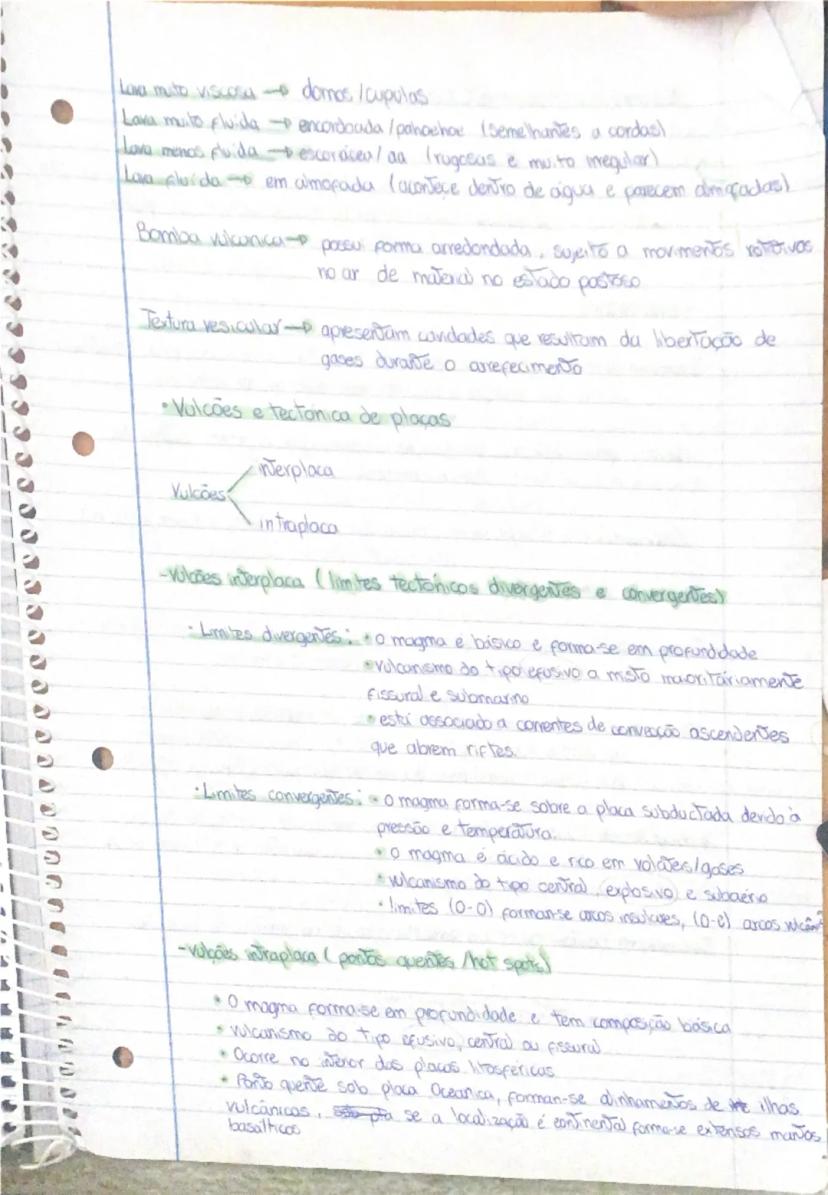 Lava muito viscosa → domos/cupulas
Lava muito fluida → encordoada/pahoehoe (semelhantes a cordas)
Lava menos fluida → escoriácea/aa (rugosas e muito irregular)
Lava fluida → em almofada (acontece dentro de água e parecem almofadas)
Bomba vulcanica → possui forma arredondada, sujeito a movimentos rotativos
no ar de material no estado pastoso
Textura vesicular → apresentam cavidades que resultam da libertação de
gases durante o arrefecimento
• Vulcões e tectónica de placas
interplaca
Vulcões
intraplaca
-Vulcões interplaca (limites tectónicos divergentes e convergentes)
· Limites divergentes: • o magma é básico e forma-se em profundidade
• vulcanismo do tipo efusivo a misto maioritáriamente
fissural e submarino
• está associado a correntes de convecção ascendentes
que abrem riftes.
· Limites convergentes: • o magma forma-se sobre a placa subductada devido à
pressão e temperatura.
• o magma é ácido e rico em voláteis/gases
• vulcanismo do tipo central, explosivo e subaério
• limites (O-O) formam-se arcos insulares, (O-C) arcos
-Vulcões intraplaca (pontos quentes/hot spots)
• O magma forma-se em profundidade e tem composição básica
• vulcanismo do tipo efusivo, central ou fissural
• Ocorre no interior das placas litosféricas
• Ponto quente sob placa Oceanica, formam-se alinhamentos de ilhas
vulcânicas, se a localização é continental forma-se extensos mantos
basalticos